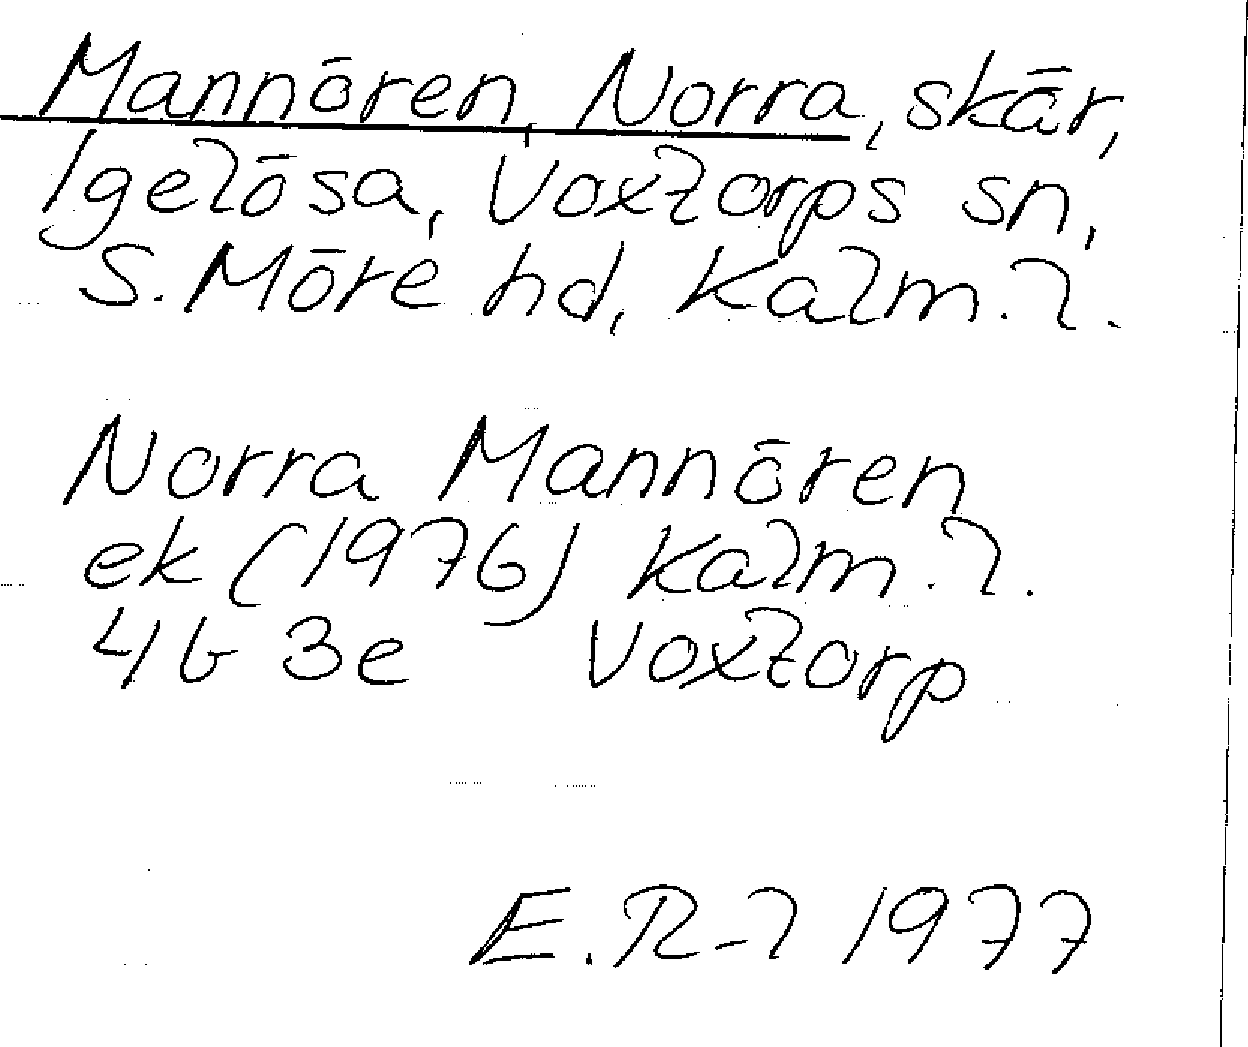 Mannören, Norra, skär,
Igelösa, Voxtorps sn,
S. Möre hd, Kalm. l.
Norra Mannören
ek (1976) Kalm. l.
4G 3e Voxtorp
E. R-l 1977